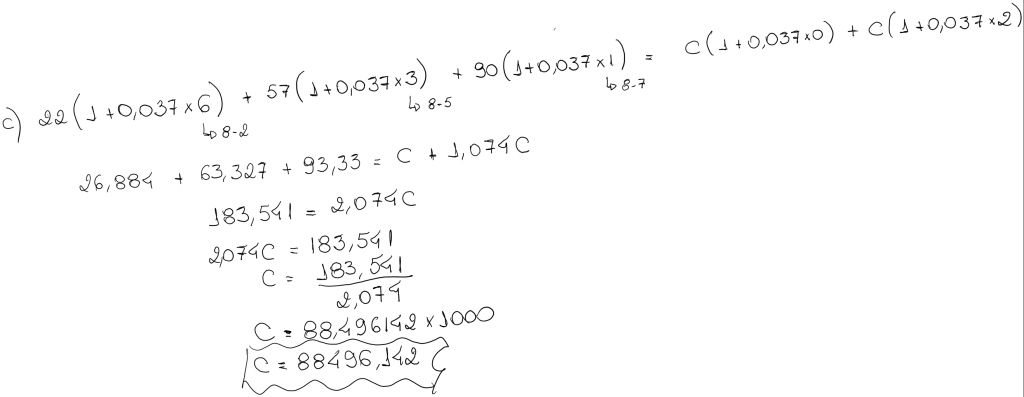 c) 22(1+0,037×6) + 57(1+0,037×3) + 90(1+0,037×1) = C(1+0,037×0) + C(1+0,037×2)
↳ 8-2 ↳ 8-5 ↳ 8-7
26,884 + 63,327 + 93,33 = C + 1,074C
183,541 = 2,074C
2,074C = 183,541
C = 183,541
2,074
C = 88,496142 × 1000
C = 88496,142